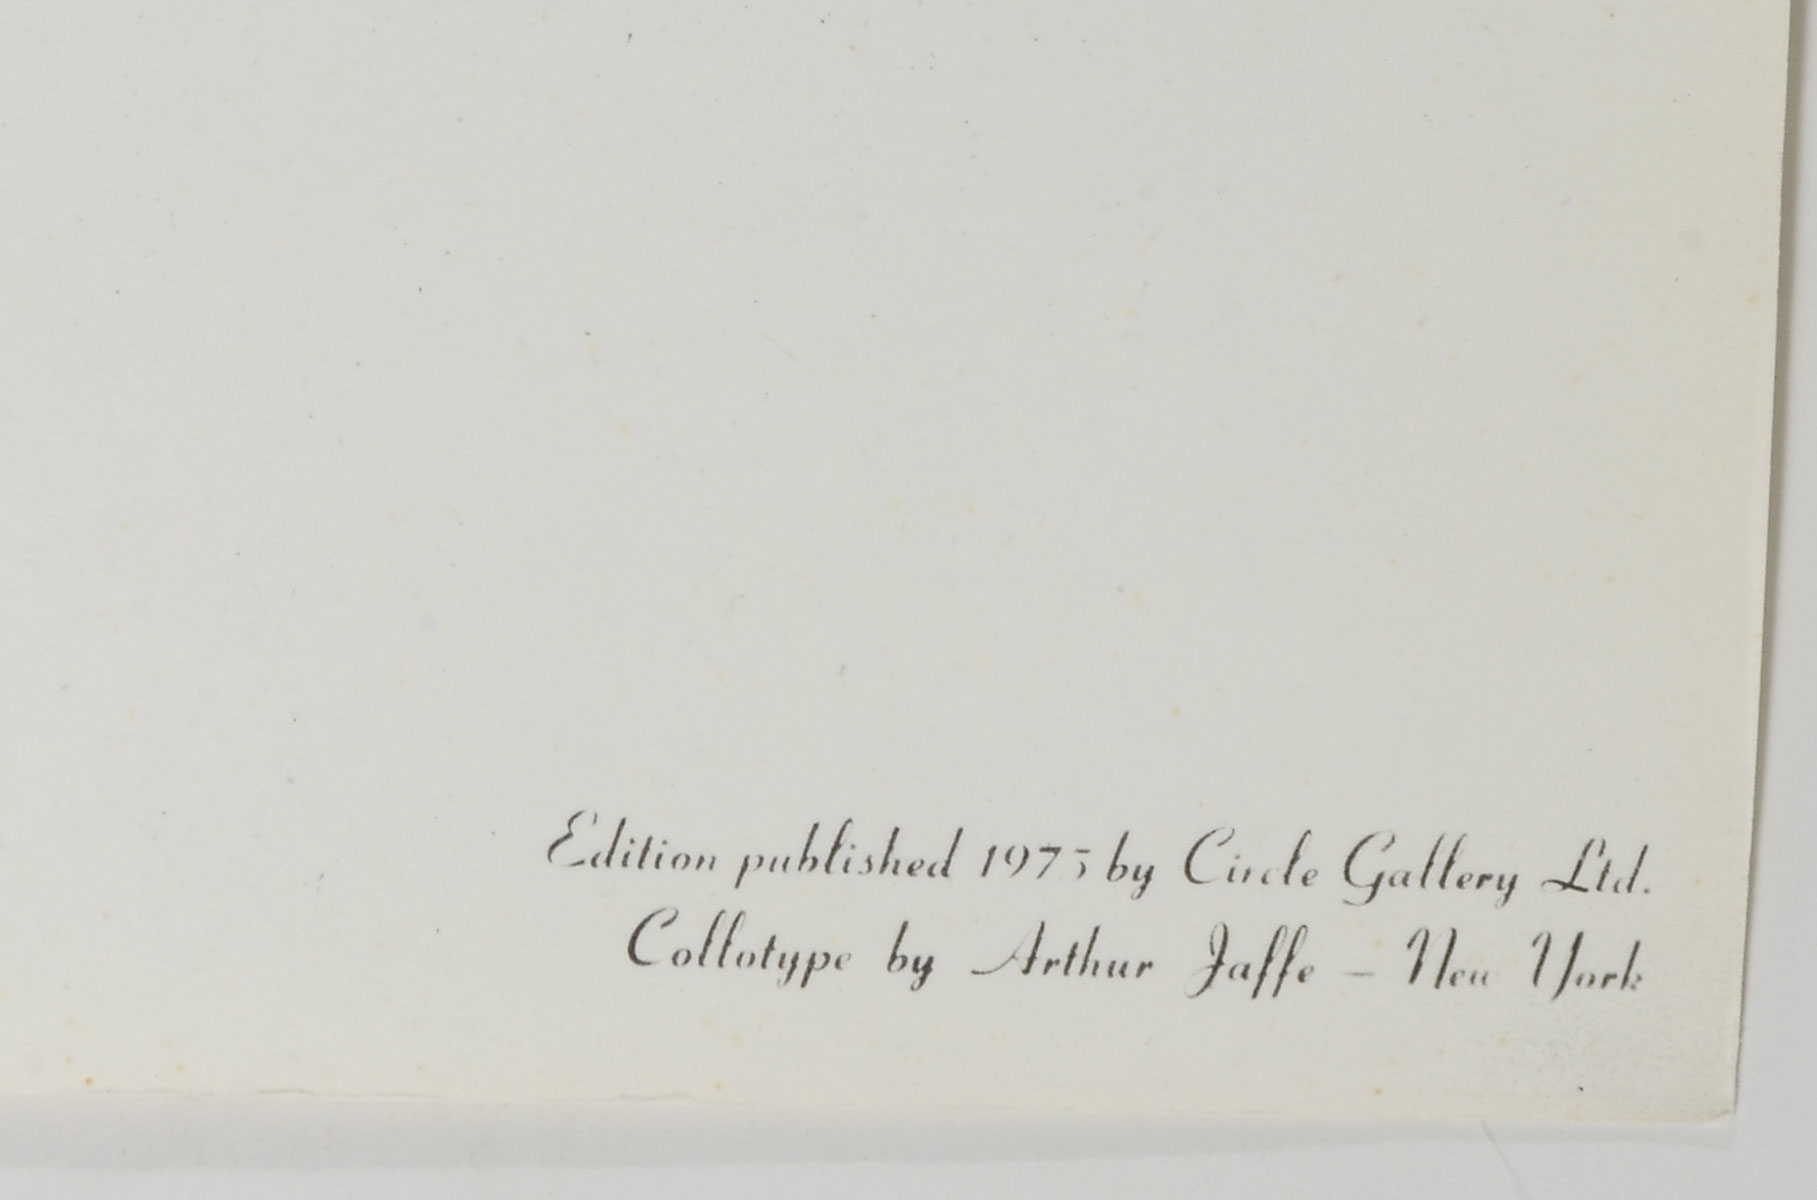 Edition published 1975 by Circle Gallery Ltd.
Collotype by Arthur Jaffe – New York